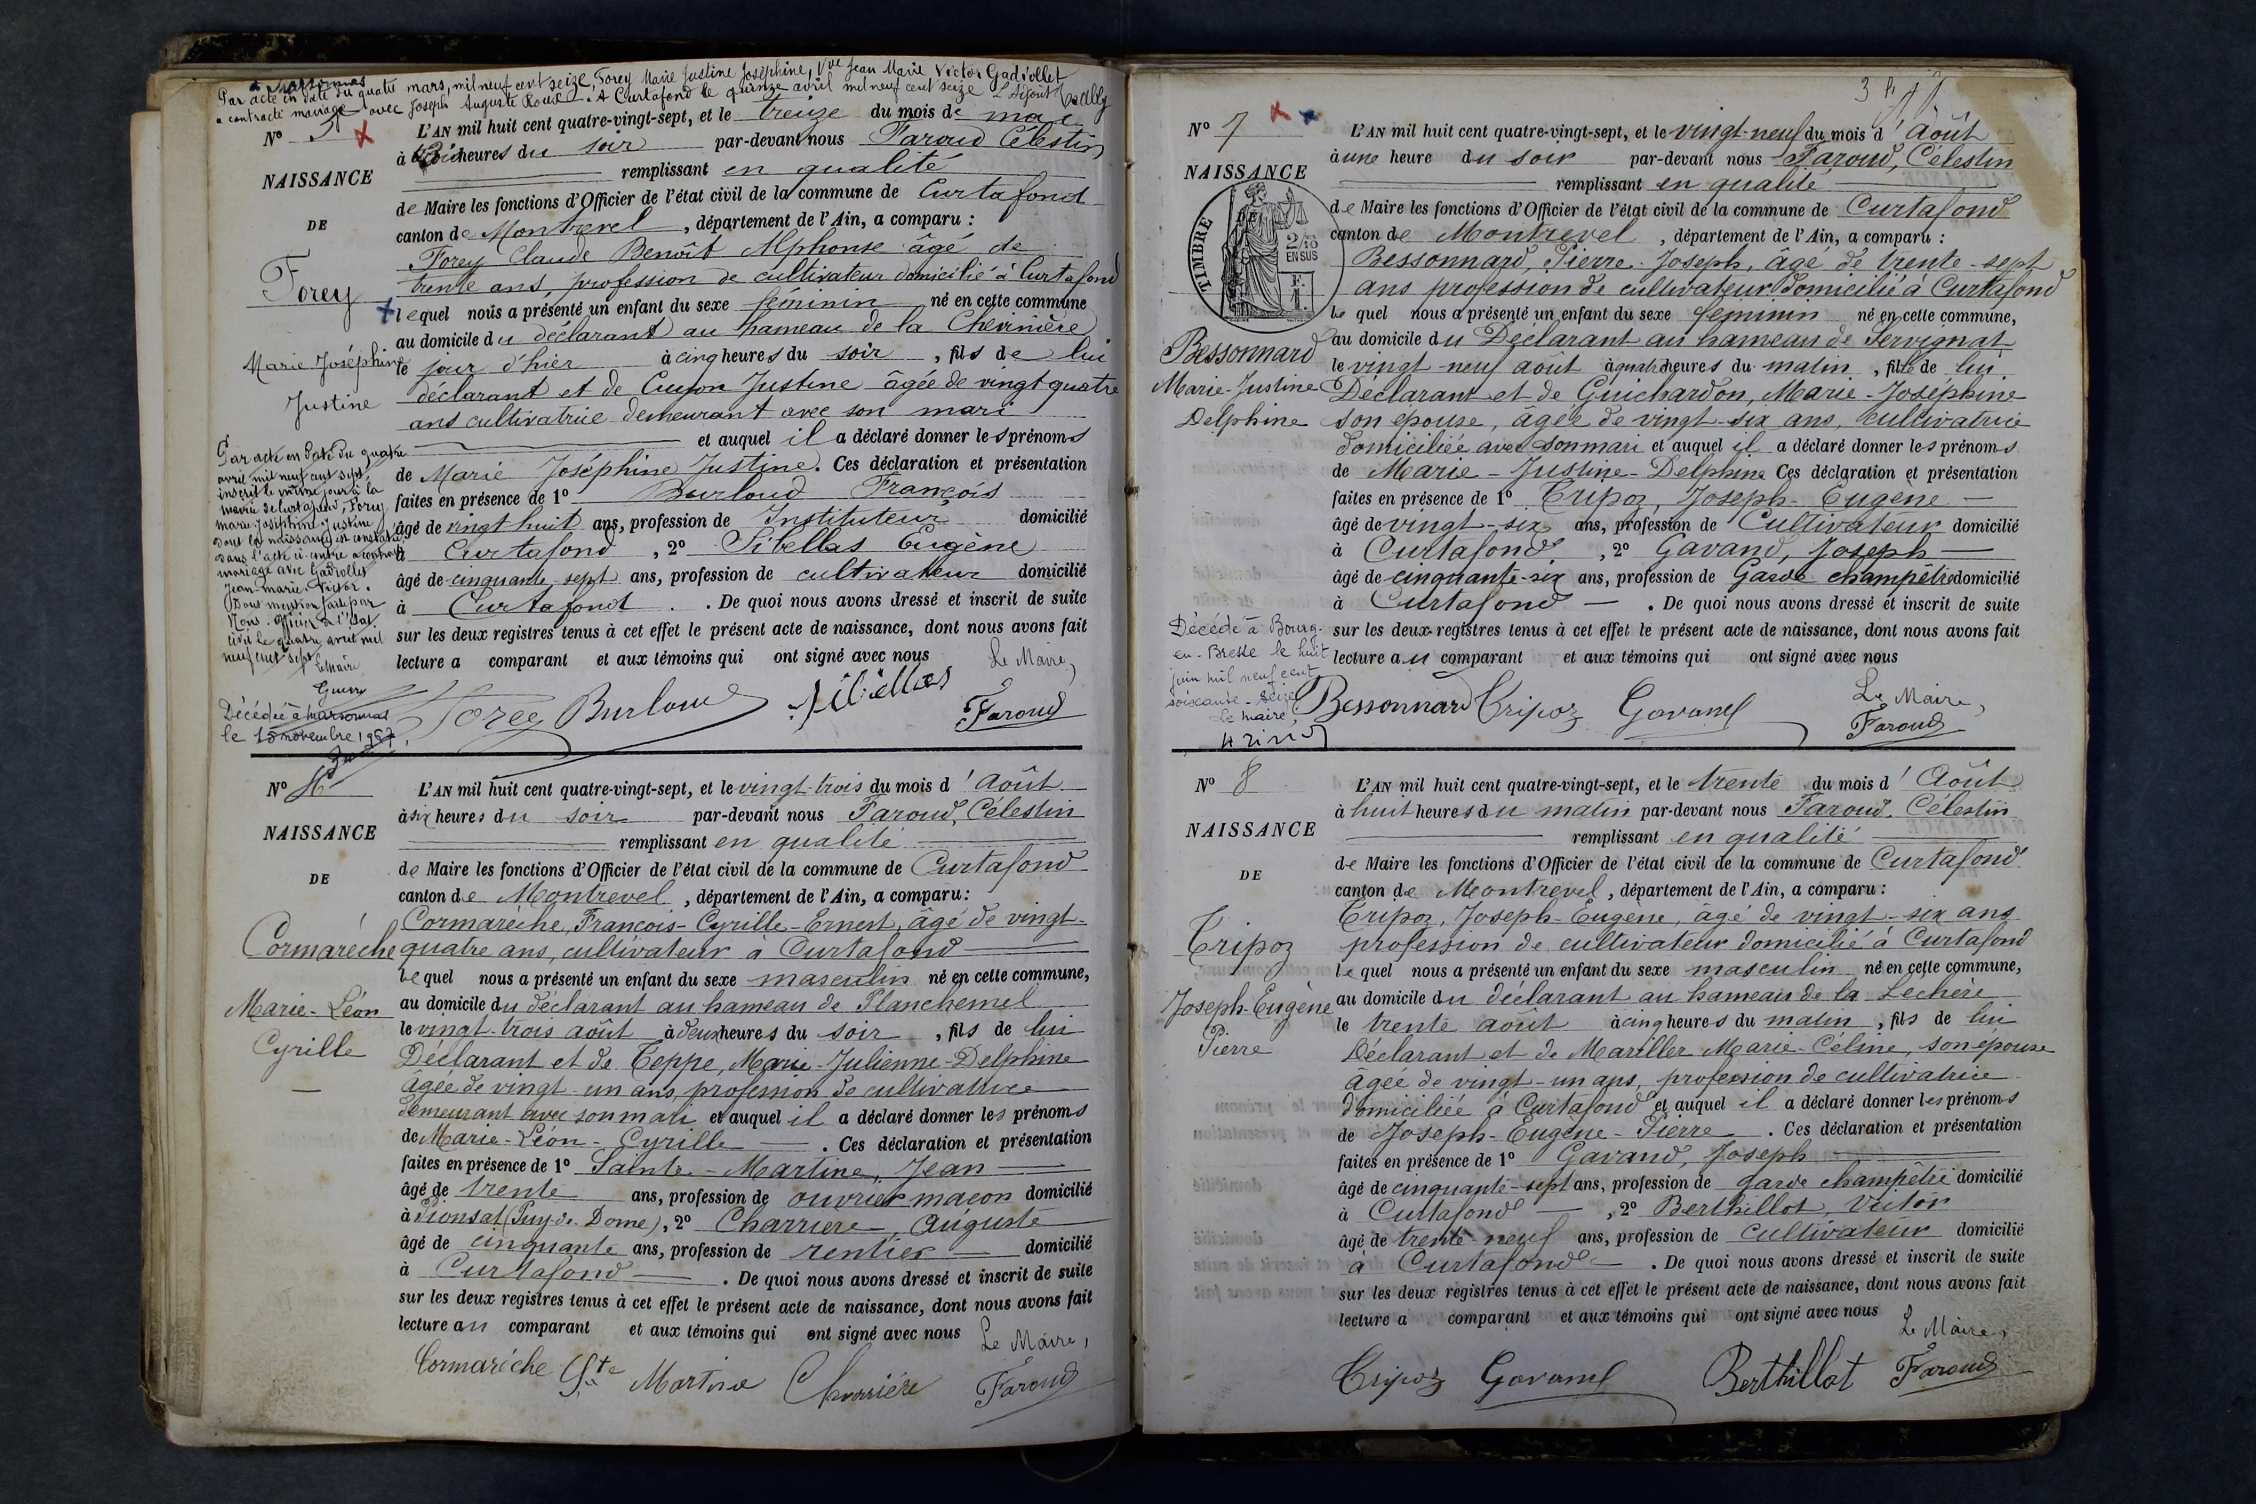 à Marsonnas
Par acte en date du quatre mars, mil neuf cent seize, Forey Marie Justine Joséphine, Vve Jean Marie Victor Gadiollet
a contracté mariage avec Joseph Auguste Roux. A Curtafond le quinze avril mil neuf cent seize L'Adjoint
No 5
NAISSANCE
DE
Forey
Marie Joséphine
Justine
L'AN mil huit cent quatre-vingt-sept, et le treize du mois de mai
à trois heures du soir par-devant nous Faroud Célestin
remplissant en qualité
de Maire les fonctions d'Officier de l'état civil de la commune de Curtafond
canton de Montrevel, département de l'Ain, a comparu :
Forey Claude Benoît Alphonse âgé de
trente ans, profession de cultivateur domicilié à Curtafond
lequel nous a présenté un enfant du sexe féminin né en cette commune
au domicile du déclarant au hameau de la Chevinière
le jour d'hier à cinq heures du soir, fils de lui
déclarant et de Curon Justine âgée de vingt quatre
ans cultivatrice demeurant avec son mari
et auquel il a déclaré donner les prénoms
de Marie Joséphine Justine. Ces déclaration et présentation
faites en présence de 1o Burloud François
âgé de vingt huit ans, profession de Instituteur domicilié
à Curtafond, 2o Sibellas Eugène
âgé de cinquante sept ans, profession de cultivateur domicilié
à Curtafond. De quoi nous avons dressé et inscrit de suite
sur les deux registres tenus à cet effet le présent acte de naissance, dont nous avons fait
lecture a comparant et aux témoins qui ont signé avec nous
Le Maire,
Forey Burloud Sibellas Faroud
Par acte en date du quatre
avril mil neuf cent sept,
inscrit le même jour à la
mairie de Curtafond, Forey
Marie Joséphine Justine
dont la naissance est constatée
dans l'acte ci-contre a contracté
mariage avec Gadiollet
Jean-Marie Victor.
Dont mention faite par
Nous, officier de l'état
civil le quatre avril mil
neuf cent sept
Le Maire
Décédée à Marsonnas
le 15 novembre 1967
No 6
NAISSANCE
DE
Cormarèche
Marie-Léon
Cyrille
L'AN mil huit cent quatre-vingt-sept, et le vingt-trois du mois d'Août
à six heures du soir par-devant nous Faroud, Célestin
remplissant en qualité
de Maire les fonctions d'Officier de l'état civil de la commune de Curtafond
canton de Montrevel, département de l'Ain, a comparu :
Cormarèche, François-Cyrille-Ernest, âgé de vingt-
quatre ans, cultivateur à Curtafond
lequel nous a présenté un enfant du sexe masculin né en cette commune,
au domicile du déclarant au hameau de Planchemel
le vingt-trois août à deux heures du soir, fils de lui
Déclarant et de Teppe, Marie-Julienne-Delphine
âgée de vingt-un ans, profession de cultivatrice
demeurant avec son mari et auquel il a déclaré donner les prénoms
de Marie-Léon-Cyrille. Ces déclaration et présentation
faites en présence de 1o Sainte-Martine, Jean
âgé de trente ans, profession de ouvrier maçon domicilié
à Pionsat (Puy-de-Dôme), 2o Charrière, Auguste
âgé de cinquante ans, profession de rentier domicilié
à Curtafond. De quoi nous avons dressé et inscrit de suite
sur les deux registres tenus à cet effet le présent acte de naissance, dont nous avons fait
lecture au comparant et aux témoins qui ont signé avec nous
Le Maire,
Cormarèche Ste Martine Charrière Faroud
No 7
NAISSANCE
TIMBRE
2/10
EN SUS
Bessonnard
Marie-Justine
Delphine
L'AN mil huit cent quatre-vingt-sept, et le vingt-neuf du mois d'Août
à une heure du soir par-devant nous Faroud, Célestin
remplissant en qualité
de Maire les fonctions d'Officier de l'état civil de la commune de Curtafond
canton de Montrevel, département de l'Ain, a comparu :
Bessonnard, Pierre-Joseph, âgé de trente-sept
ans profession de cultivateur domicilié à Curtafond
lequel nous a présenté un enfant du sexe féminin né en cette commune,
au domicile du Déclarant au hameau de Servignat
le vingt-neuf août à quatre heures du matin, fille de lui
Déclarant et de Guichardon, Marie-Joséphine
son épouse, âgée de vingt-six ans, cultivatrice
domiciliée avec son mari et auquel il a déclaré donner les prénoms
de Marie-Justine-Delphine Ces déclaration et présentation
faites en présence de 1o Tripoz, Joseph-Eugène
âgé de vingt-six ans, profession de Cultivateur domicilié
à Curtafond, 2o Gavand, Joseph
âgé de cinquante-six ans, profession de Garde champêtre domicilié
à Curtafond. De quoi nous avons dressé et inscrit de suite
sur les deux registres tenus à cet effet le présent acte de naissance, dont nous avons fait
lecture au comparant et aux témoins qui ont signé avec nous
Le Maire,
Bessonnard Tripoz Gavand Faroud
Décédée à Bourg-
en-Bresse le huit
juin mil neuf cent
soixante-seize
Le maire,
No 8
NAISSANCE
DE
Tripoz
Joseph-Eugène
Pierre
L'AN mil huit cent quatre-vingt-sept, et le trente du mois d'Août
à huit heures du matin par-devant nous Faroud, Célestin
remplissant en qualité
de Maire les fonctions d'Officier de l'état civil de la commune de Curtafond
canton de Montrevel, département de l'Ain, a comparu :
Tripoz, Joseph-Eugène, âgé de vingt-six ans
profession de cultivateur domicilié à Curtafond
lequel nous a présenté un enfant du sexe masculin né en cette commune,
au domicile du déclarant au hameau de la Lechère
le trente août à cinq heures du matin, fils de lui
Déclarant et de Mariller Marie-Céline, son épouse
âgée de vingt-un ans, profession de cultivatrice
domiciliée à Curtafond et auquel il a déclaré donner les prénoms
de Joseph-Eugène-Pierre. Ces déclaration et présentation
faites en présence de 1o Gavand, Joseph
âgé de cinquante-sept ans, profession de garde champêtre domicilié
à Curtafond, 2o Berthillot, Victor
âgé de trente-neuf ans, profession de cultivateur domicilié
à Curtafond. De quoi nous avons dressé et inscrit de suite
sur les deux registres tenus à cet effet le présent acte de naissance, dont nous avons fait
lecture a comparant et aux témoins qui ont signé avec nous
Le Maire,
Tripoz Gavand Berthillot Faroud